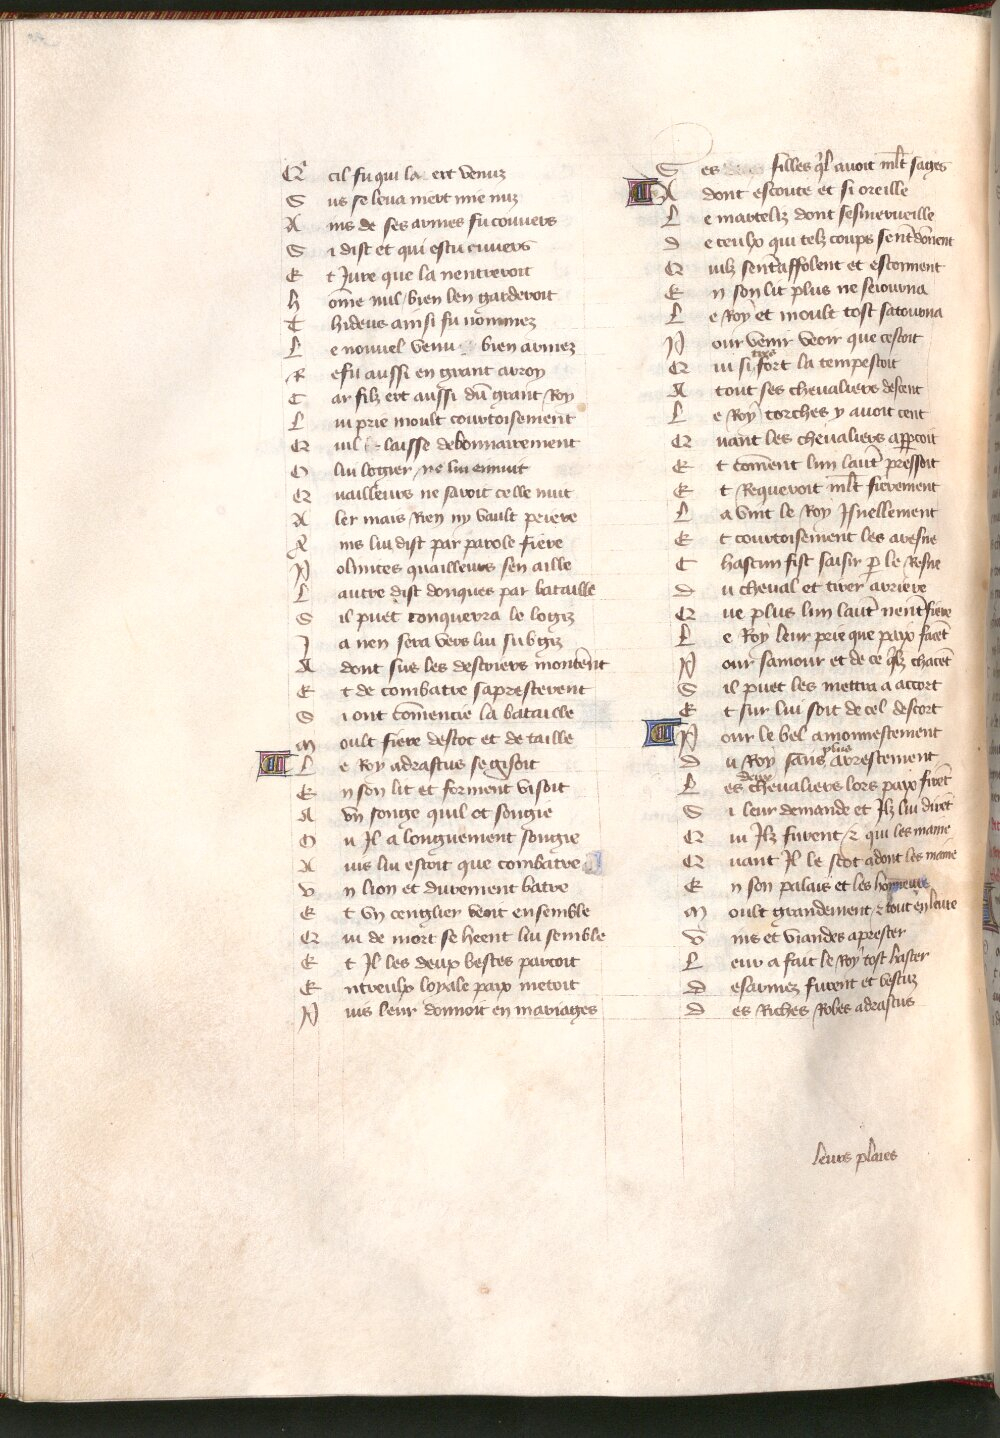 Qa cil fu qui la ert venuz
Sus se leva niert mie nuz
Ains de ses armes fu couvers
Si dist et qui estu cuivers
Et Jure que la nentreroit
home nul bien len garderoit
Thideus ainsi fu nommez
Le nouvel venu bien armez
Refu aussi en grant arroy
Car filz ert aussi dun grant Roy
Lui prie moult courtoisement
Quil laisse debonnairement
O lui logier ne lui ennuit
Quailleurs ne savoit celle nuit
Aler mais Rien ny vault priere
Ains lui dist par parole fiere
Noluntes quailleurs sen aille
Lautre dist donques par bataille
Sil puet conquerra le logiz
Ja nen sera vers lui subgiz
Adont sus les destriers monterent
Et de combatre sapresterent
Si ont comencie la bataille
Moult fiere destoc et de taille
Le Roy adrastus se gisoit
En son lit et forment visoit
A vn songe quil ot songie
Ou Il a longuement songie
Auis lui estoit que combatre
Vn lion et durement batre
Et vn cenglier veoit ensemble
Qui de mort se heent lui semble
Et Il les deux bestes partoit
Entreulx loyale paix metoit
Puis leur donnoit en mariages
Ses filles ql avoit mlt sages
Adont escoute et si oreille
Le marteliz dont sesmerveille
De ceulx qui telz coups sentdonent
Quilz sentaffolent et estonnent
En son lit plus ne seiourna
Le Roy et moult tost satourna
Pour venir veoir que cestoit
Qui si tres fort la tempestoit
A tout ses chevaliers descent
Le Roy torches y avoit cent
Quant les chevaliers appcoit
Et coment lun laut pressoit
Et Requeroit mlt fierement
La vint le Roy Isnellement
Et courtoisement les aresne
Chascun fist saisir p le Resne
Du cheval et tirer arriere
Que plus lun laut nentfiere
Le Roy leur prie que paix facet
Pour samour et de ce qlz chacet
Sil puet les mettra a accort
Et sur lui soit de cel descort
Pour le bel amonnestement
Du Roy sans plus arrestement
Les deux chevaliers lors paix firet
Si leur demande et Ilz lui diret
Qui Ilz furent & qui les maine
Quant Il le scot adont les maine
En son palais et les honneure
Moult grandement & tout en leure
Vins et viandes aprester
Leur a fait le Roy tost haster
Desarmez furent et vestuz
Des Riches Robes adrastus
leurs plaies